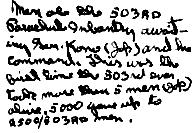 Men of the 503RD
Parachute Infantry await-
ing Gen. Kono (Jap) and his
Command. This was the
first time the 503rd ever
took more than 5 men (Jap)
alive. 5000 gave up to
2500/503RD men.